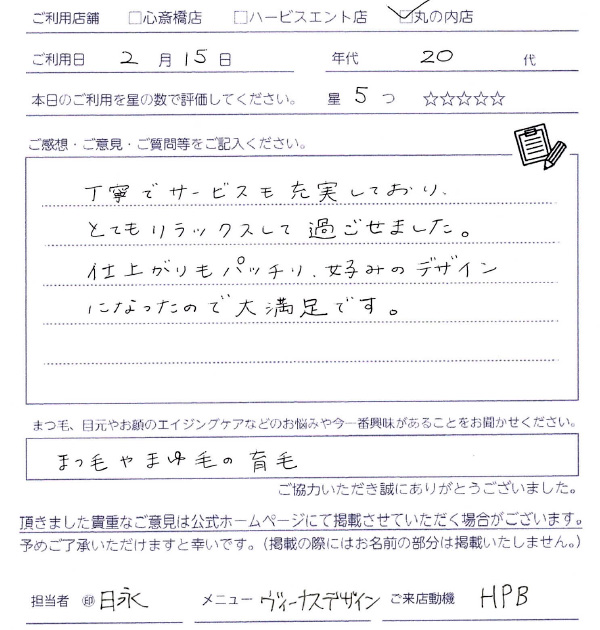 ご利用店舗 □心斎橋店 □ハービスエント店 ☑丸の内店
ご利用日 2 月 15 日 年代 20 代
本日のご利用を星の数で評価してください。 星 5 つ ☆☆☆☆☆
ご感想・ご意見・ご質問等をご記入ください。
丁寧でサービスも充実しており、
とてもリラックスして過ごせました。
仕上がりもパッチリ、好みのデザイン
になったので大満足です。
まつ毛、目元やお顔のエイジングケアなどのお悩みや今一番興味があることをお聞かせください。
まつ毛やまゆ毛の育毛
ご協力いただき誠にありがとうございました。
頂きました貴重なご意見は公式ホームページにて掲載させていただく場合がございます。
予めご了承いただけますと幸いです。(掲載の際にはお名前の部分は掲載いたしません。)
担当者 ㊞ 日永 メニュー ヴィーナスデザイン ご来店動機 HPB